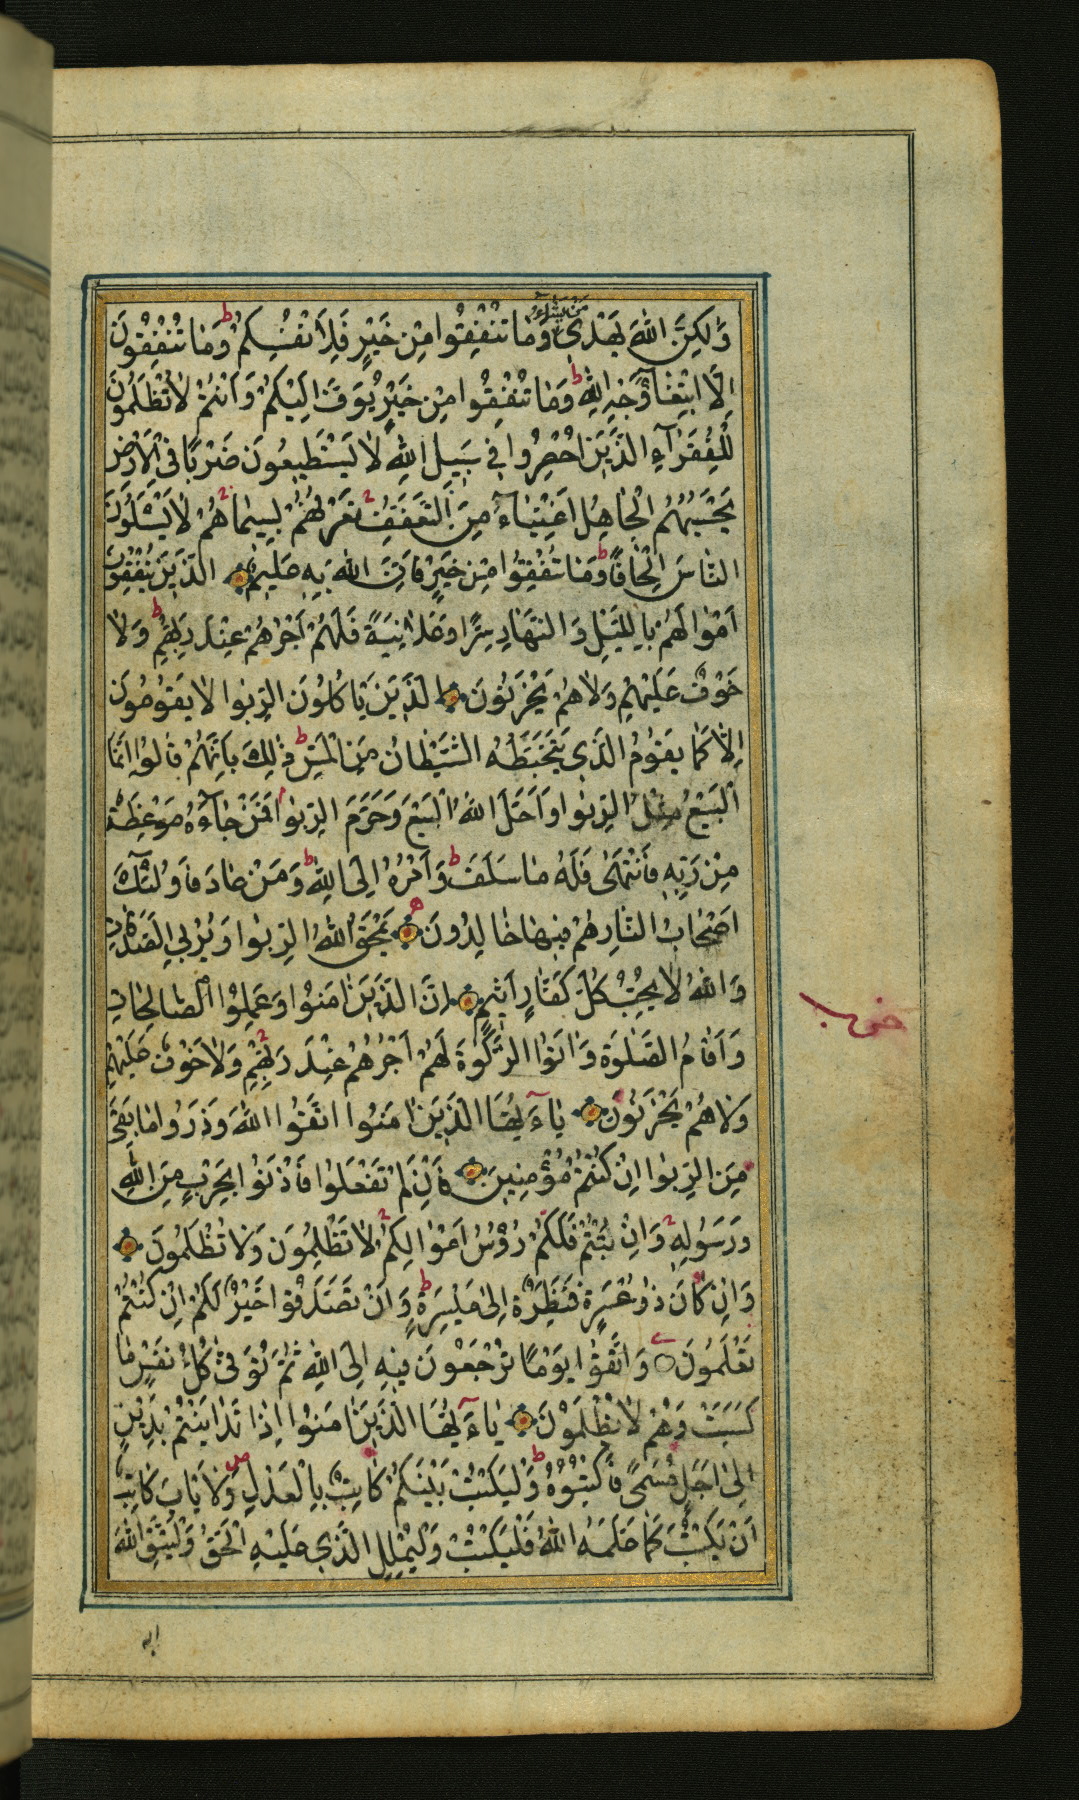 وَلٰكِنَّ اللّٰهَ يَهْدِى مَنْ يَشَآءُ وَمَا تُنْفِقُوا مِنْ خَيْرٍ فَلِاَنْفُسِكُمْ ط وَمَا تُنْفِقُونَ
اِلَّا ابْتِغَآءَ وَجْهِ اللّٰهِ ط وَمَا تُنْفِقُوا مِنْ خَيْرٍ يُوَفَّ اِلَيْكُمْ وَاَنْتُمْ لَا تُظْلَمُونَ
لِلْفُقَرَآءِ الَّذِينَ اُحْصِرُوا فِي سَبِيلِ اللّٰهِ لَا يَسْتَطِيعُونَ ضَرْبًا فِى الْاَرْضِ
يَحْسَبُهُمُ الْجَاهِلُ اَغْنِيَآءَ مِنَ التَّعَفُّفِ تَعْرِفُهُمْ بِسِيمَاهُمْ لَا يَسْئَلُونَ
النَّاسَ اِلْحَافًا ط وَمَا تُنْفِقُوا مِنْ خَيْرٍ فَاِنَّ اللّٰهَ بِهِ عَلِيمٌ الَّذِينَ يُنْفِقُونَ
اَمْوَالَهُمْ بِاللَّيْلِ وَالنَّهَارِ سِرًّا وَعَلَانِيَةً فَلَهُمْ اَجْرُهُمْ عِنْدَ رَبِّهِمْ ط وَلَا
خَوْفٌ عَلَيْهِمْ وَلَا هُمْ يَحْزَنُونَ الَّذِينَ يَاْكُلُونَ الرِّبٰوا لَا يَقُومُونَ
اِلَّا كَمَا يَقُومُ الَّذِي يَتَخَبَّطُهُ الشَّيْطَانُ مِنَ الْمَسِّ ط ذٰلِكَ بِاَنَّهُمْ قَالُوا اِنَّمَا
الْبَيْعُ مِثْلُ الرِّبٰوا وَاَحَلَّ اللّٰهُ الْبَيْعَ وَحَرَّمَ الرِّبٰوا فَمَنْ جَآءَهُ مَوْعِظَةٌ
مِنْ رَبِّهِ فَانْتَهٰى فَلَهُ مَا سَلَفَ ط وَاَمْرُهُ اِلَى اللّٰهِ ط وَمَنْ عَادَ فَاُولٰئِكَ
اَصْحَابُ النَّارِ هُمْ فِيهَا خَالِدُونَ يَمْحَقُ اللّٰهُ الرِّبٰوا وَيُرْبِي الصَّدَقَاتِ
وَاللّٰهُ لَا يُحِبُّ كُلَّ كَفَّارٍ اَثِيمٍ اِنَّ الَّذِينَ اٰمَنُوا وَعَمِلُوا الصَّالِحَاتِ
وَاَقَامُ الصَّلٰوةَ وَاٰتَوُا الزَّكٰوةَ لَهُمْ اَجْرُهُمْ عِنْدَ رَبِّهِمْ وَلَا خَوْفٌ عَلَيْهِمْ
وَلَا هُمْ يَحْزَنُونَ يَآ اَيُّهَا الَّذِينَ اٰمَنُوا اتَّقُوا اللّٰهَ وَذَرُوا مَا بَقِيَ
مِنَ الرِّبٰوا اِنْ كُنْتُمْ مُؤْمِنِينَ فَاِنْ لَمْ تَفْعَلُوا فَاْذَنُوا بِحَرْبٍ مِنَ اللّٰهِ
وَرَسُولِهِ وَاِنْ تُبْتُمْ فَلَكُمْ رُؤُسُ اَمْوَالِكُمْ لَا تَظْلِمُونَ وَلَا تُظْلَمُونَ
وَاِنْ كَانَ ذُو عُسْرَةٍ فَنَظِرَةٌ اِلٰى مَيْسَرَةٍ ط وَاَنْ تَصَدَّقُوا خَيْرٌ لَكُمْ اِنْ كُنْتُمْ
تَعْلَمُونَ وَاتَّقُوا يَوْمًا تُرْجَعُونَ فِيهِ اِلَى اللّٰهِ ثُمَّ تُوَفّٰى كُلُّ نَفْسٍ مَا
كَسَبَتْ وَهُمْ لَا يُظْلَمُونَ يَآ اَيُّهَا الَّذِينَ اٰمَنُوا اِذَا تَدَايَنْتُمْ بِدَيْنٍ
اِلٰى اَجَلٍ مُسَمًّى فَاكْتُبُوهُ ط وَلْيَكْتُبْ بَيْنَكُمْ كَاتِبٌ بِالْعَدْلِ ص وَلَا يَاْبَ كَاتِبٌ
اَنْ يَكْتُبَ كَمَا عَلَّمَهُ اللّٰهُ فَلْيَكْتُبْ وَلْيُمْلِلِ الَّذِي عَلَيْهِ الْحَقُّ وَلْيَتَّقِ اللّٰهَ